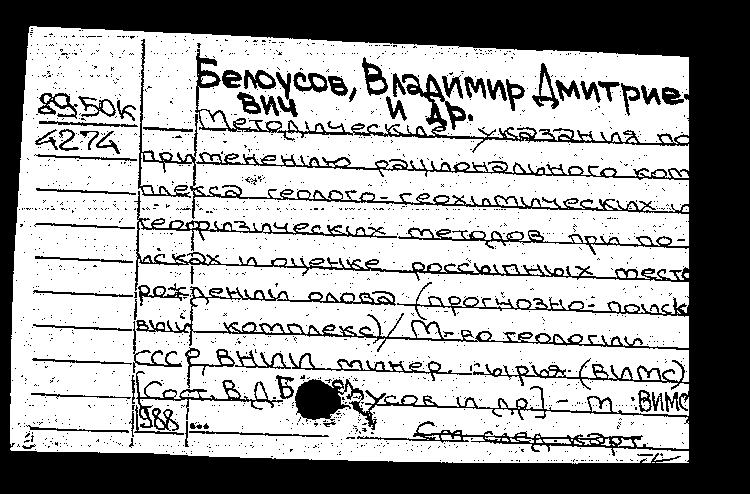 Белоусов, Владимир Дмитрие-
вич и др.
89-50К
Методические указания по
4274
применению рационального ком
плекса геолого-геохимических и
геофизических методов при по-
исках и оценке россыпных место
рождений олова (прогнозно-поиск
вый комплекс) / М-во геологии
СССР, ВНИИ минер. сырья (ВИМС)
[Сост. В.Д. Белоусов и др.] - М.: ВИМС
1988 ...
См. след. карт.